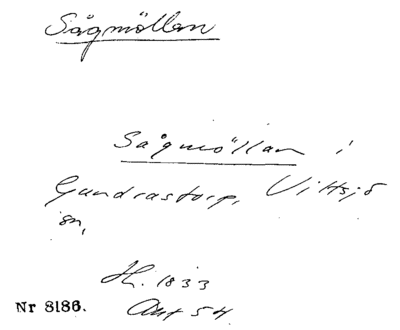 Sågmöllan
Sågmöllan i
Gundrastorp, Vittsjö
sn,
H. 1833
Akt 54
Nr 8186.